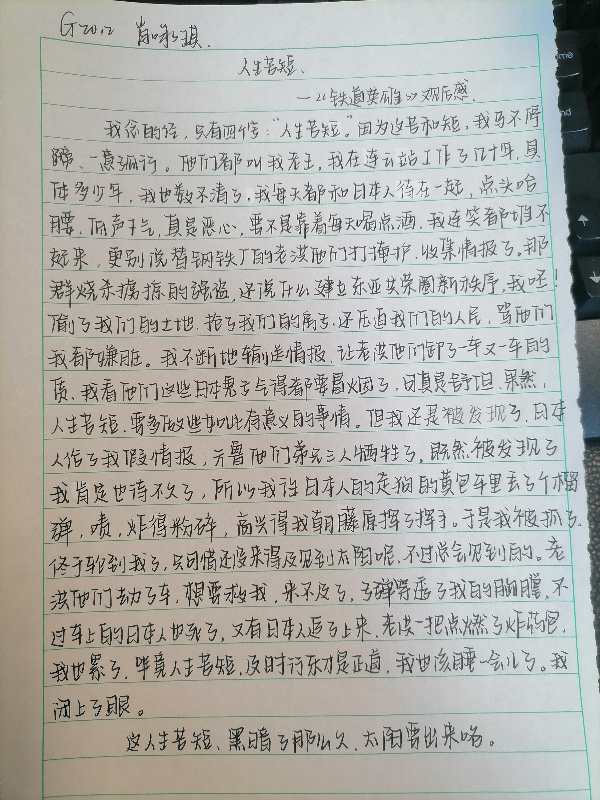 G2012 肖咏琪
人生苦短
—《铁道英雄》观后感
我念的经，只有四个字："人生苦短。"因为这苦和短，我马不停
蹄、一意孤行。他们都叫我老王，我在连云站工作了几十年，具
体多少年，我也数不清了，我每天都和日本人待在一起，点头哈
腰，低声下气，真是恶心，要不是靠着每天喝点酒，我连笑都堆不
起来，更别说替钢铁厂的老洪他们打掩护，收集情报了。那
群烧杀掳掠的强盗，还说什么建立东亚共荣圈新秩序，我呸！
偷了我们的土地，抢了我们的房子，还压迫我们的人民，骂他们
我都嫌脏。我不断地输送情报，让老洪他们卸了一车又一车的
货，我看他们这些日本鬼子气得都要冒烟了，可真是舒坦，果然，
人生苦短，要多做些如此有意义的事情。但我还是被发现了，日本
人给了我假情报，亓鲁他们弟兄三人牺牲了，既然被发现了
我肯定也待不久了，所以我往日本人的走狗的黄包车里丢了个榴
弹，啧，炸得粉碎，高兴得我朝藤原挥了挥手。于是我被抓了，
终于轮到我了，只可惜还没来得及见到太阳呢，不过总会见到的。老
洪他们劫了车，想要救我，来不及了，子弹穿透了我的胸膛，不
过车上的日本人也死了，又有日本人追了上来，老洪一把点燃了炸药包，
我也累了，毕竟人生苦短，及时行乐才是正道，我也该睡一会儿了。我
闭上了眼。
这人生苦短、黑暗了那么久，太阳要出来咯。